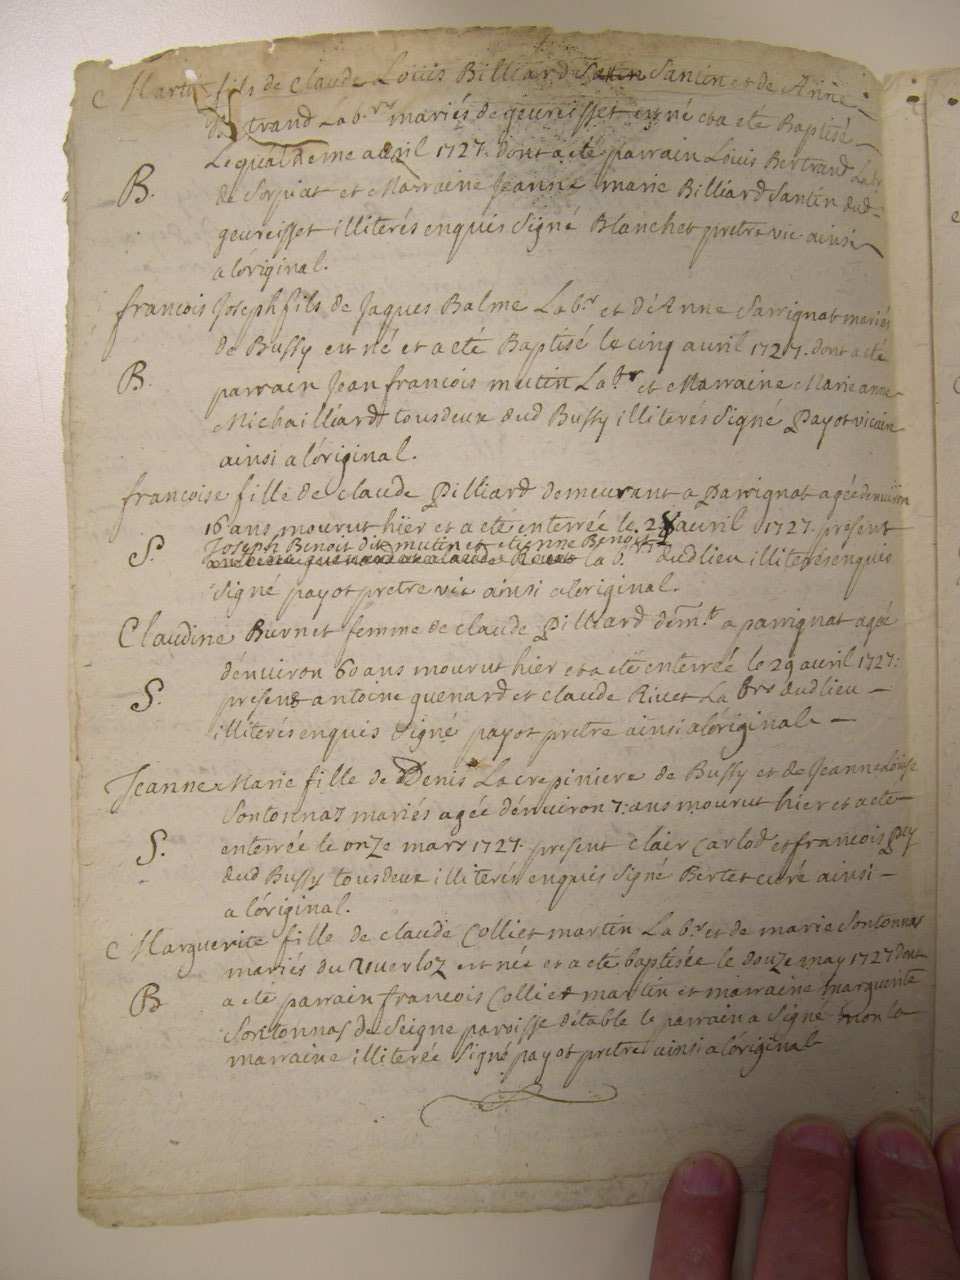 Martin fils de Claude Louis Billiard Santin Santin et de Anne
Bertrand Lab.rs mariés de geureisset est né et a eté Baptisé
Le quatrieme avril 1727. dont a eté parrain Louis Bertrand Labr
B. de Sorpiat et Marraine Jeanne marie Billiard Santin dud
geureisset illiterés enquis Signé Blanchet pretre vic ainsi
a loriginal.
francois Joseph fils de Jaques Balme Lab.r et d'Anne Sarrignat mariés
de Bussy est né et a eté Baptisé le cinq avril 1727. dont a eté
B. parrain Jean francois mutin Lab.r et Marraine Marie anne
Michailliard tous deux dud Bussy illiterés Signé Payot vicaire
ainsi a l'original.
francoise fille de claude Pilliard demeurant a Parrignat agée denuiron
16 ans mourut hier et a eté enterrée le avril 1727. present
Joseph Benoit dit mutin et etienne Benoit
S. lab.rs dudlieu illiterés enquis
Signé payot pretre vic ainsi a loriginal.
Claudine Burnet femme de claude Pilliard dem.t a parrignat agée
dénuiron 60 ans mourut hier et a eté enterrée le 29 avril 1727:
S. presens antoine guenard et claude Rivet Labrs dudlieu —
illiterés enquis Signé payot pretre ainsi a l'original —
Jeanne Marie fille de Denis La crepiniere de Bussy et de Jeanne Louise
Sontonnas mariés agée dénuiron 7: ans mourut hier et a eté
S. enterrée le onze mars 1727. present clair Carlod et francois Pey
dud Bussy tous deux illiterés enquis Signé Bertet curé ainsi —
a l'original.
Marguerite fille de claude Colliet martin Lab.r et de marie Sontonnas
mariés du Uuerloz est née et a eté baptisée le douze may 1727 dont
B a eté parrain francois Colliet martin et marraine marguerite
Sontonnas de Seigne paroisse d'étable le parrain a Signé non la
marraine illiterée Signé payot pretre ainsi a loriginal